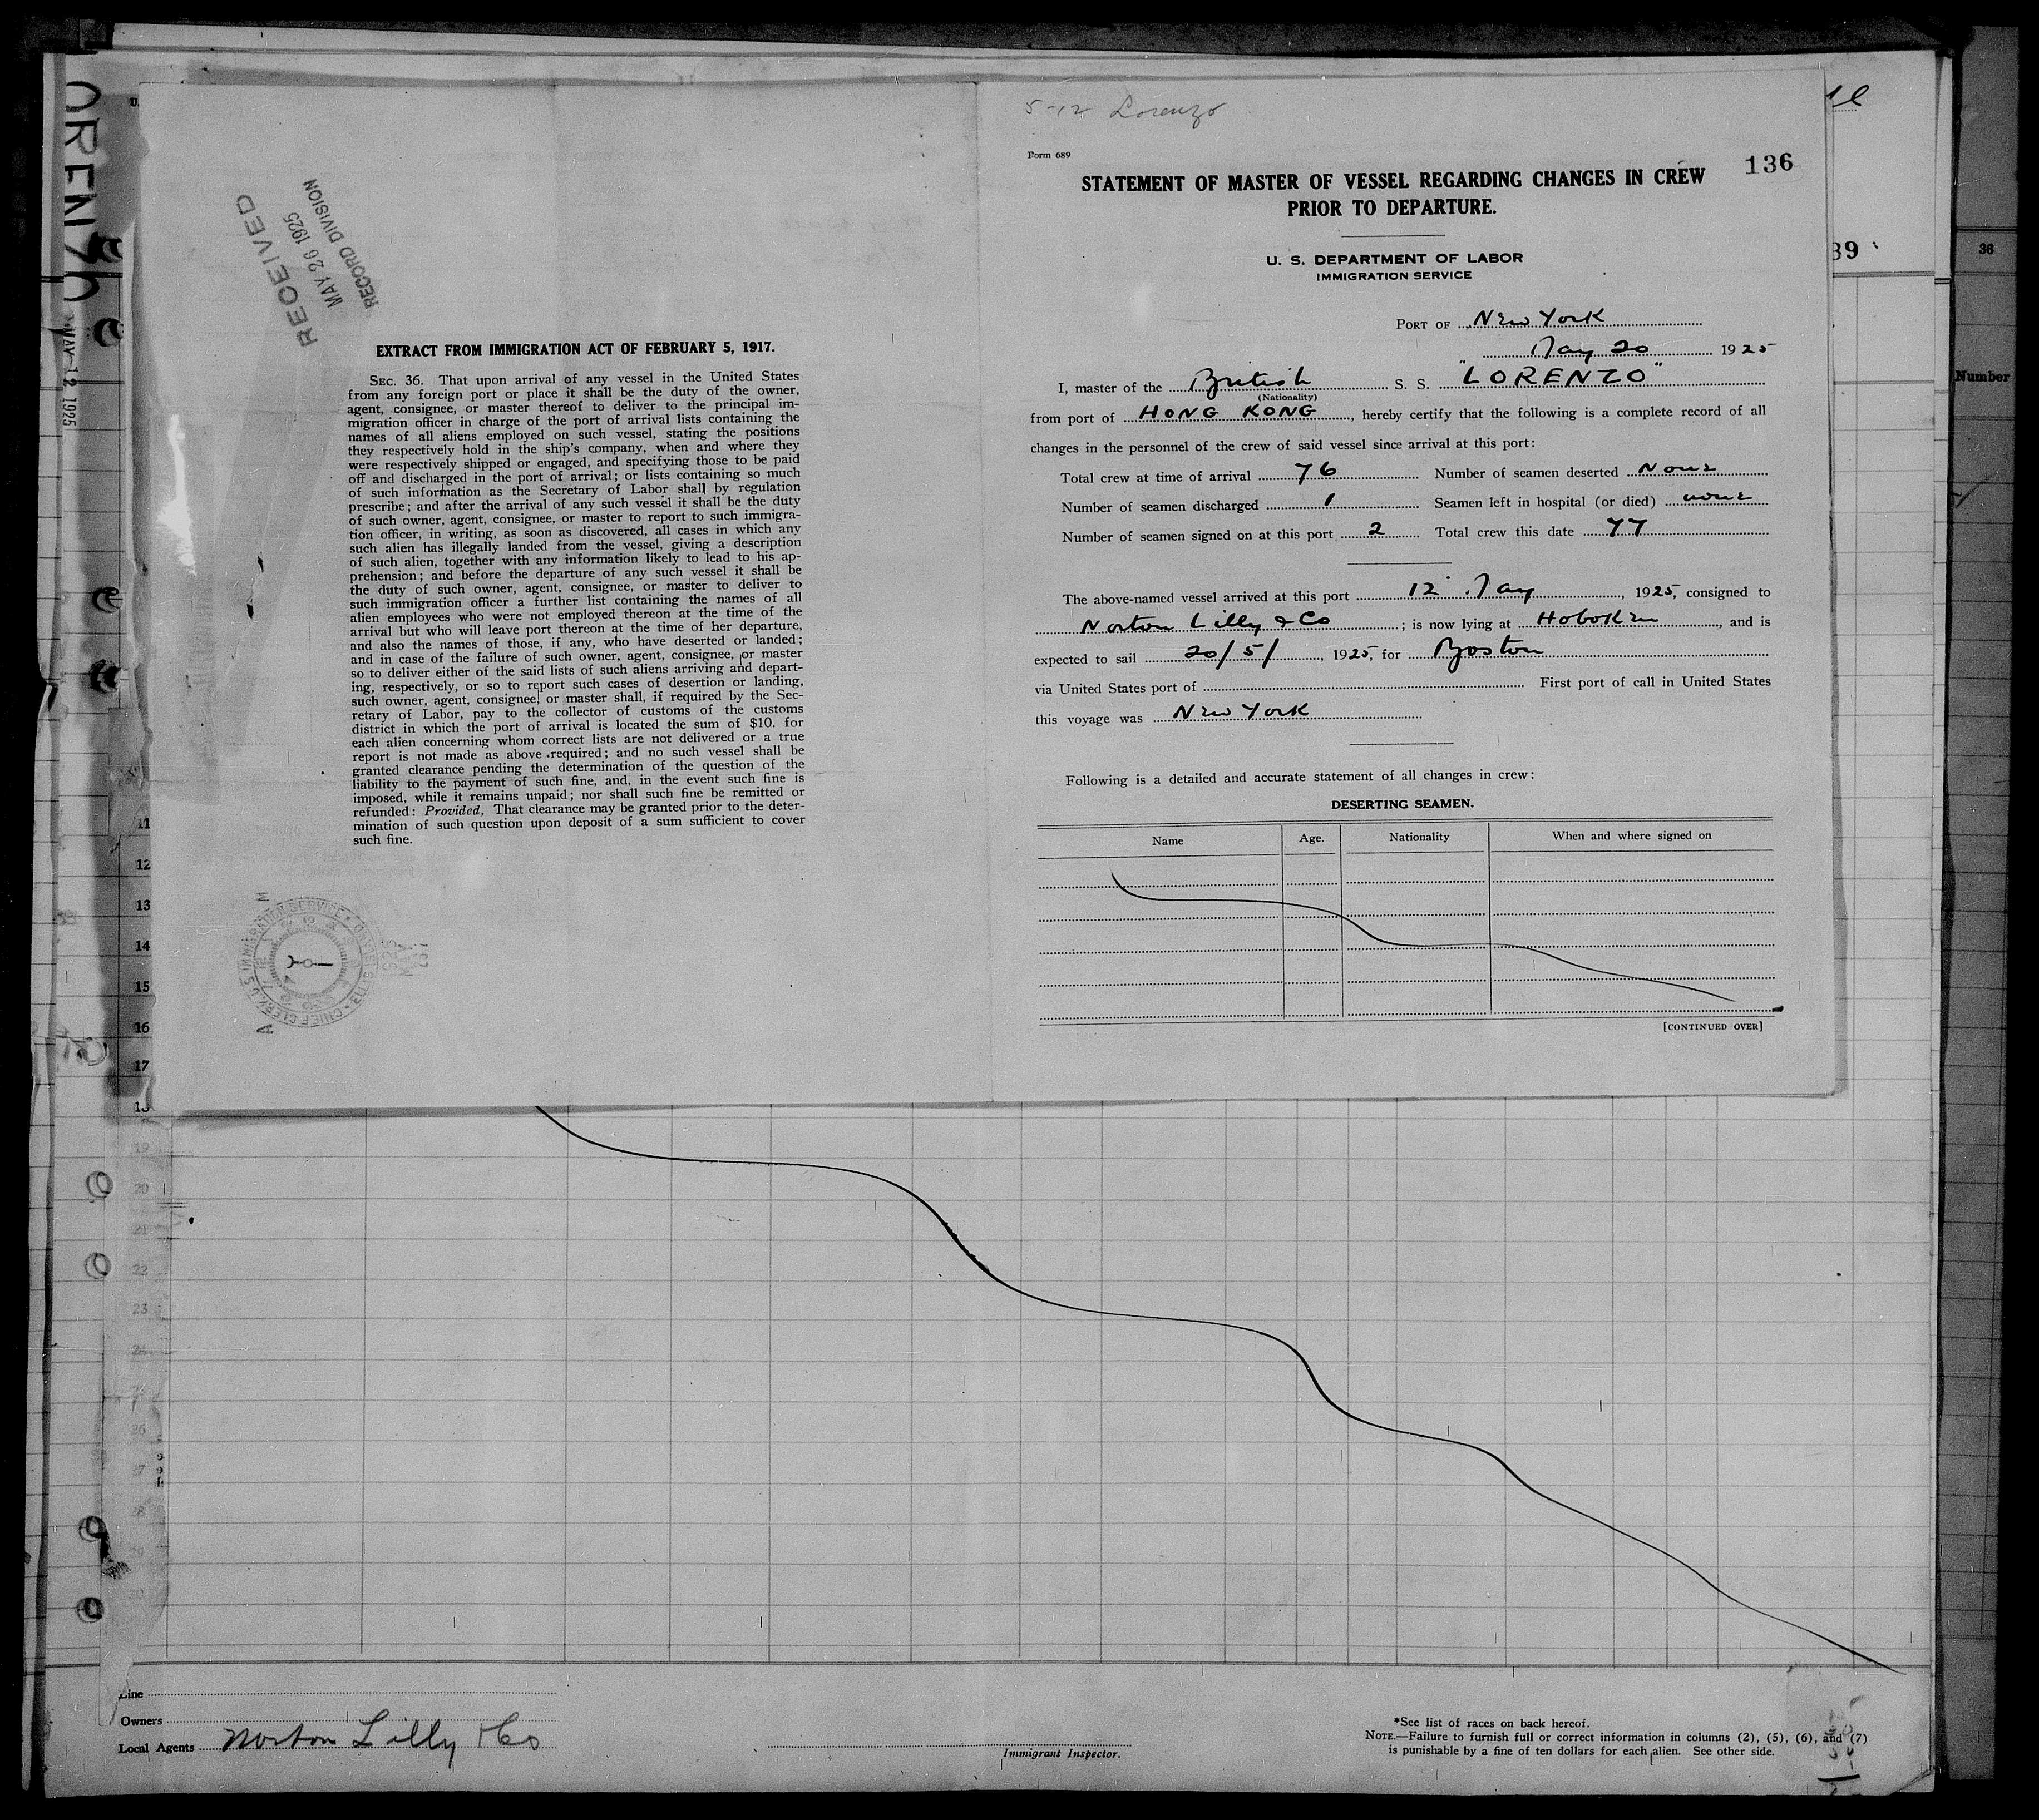 LORENZO
MAY 12 1925
RECEIVED
MAY 26 1925
RECORD DIVISION
EXTRACT FROM IMMIGRATION ACT OF FEBRUARY 5, 1917.
SEC. 36. That upon arrival of any vessel in the United States
from any foreign port or place it shall be the duty of the owner,
agent, consignee, or master thereof to deliver to the principal im-
migration officer in charge of the port of arrival lists containing the
names of all aliens employed on such vessel, stating the positions
they respectively hold in the ship's company, when and where they
were respectively shipped or engaged, and specifying those to be paid
off and discharged in the port of arrival; or lists containing so much
of such information as the Secretary of Labor shall by regulation
prescribe; and after the arrival of any such vessel it shall be the duty
of such owner, agent, consignee, or master to report to such immigra-
tion officer, in writing, as soon as discovered, all cases in which any
such alien has illegally landed from the vessel, giving a description
of such alien, together with any information likely to lead to his ap-
prehension; and before the departure of any such vessel it shall be
the duty of such owner, agent, consignee, or master to deliver to
such immigration officer a further list containing the names of all
alien employees who were not employed thereon at the time of the
arrival but who will leave port thereon at the time of her departure,
and also the names of those, if any, who have deserted or landed;
and in case of the failure of such owner, agent, consignee, or master
so to deliver either of the said lists of such aliens arriving and depart-
ing, respectively, or so to report such cases of desertion or landing,
such owner, agent, consignee, or master shall, if required by the Sec-
retary of Labor, pay to the collector of customs of the customs
district in which the port of arrival is located the sum of $10. for
each alien concerning whom correct lists are not delivered or a true
report is not made as above required; and no such vessel shall be
granted clearance pending the determination of the question of the
liability to the payment of such fine, and, in the event such fine is
imposed, while it remains unpaid; nor shall such fine be remitted or
refunded: Provided, That clearance may be granted prior to the deter-
mination of such question upon deposit of a sum sufficient to cover
such fine.
CHIEF CLERK, U.S. IMMIGRATION SERVICE
5-12 Lorenzo
Form 689
136
STATEMENT OF MASTER OF VESSEL REGARDING CHANGES IN CREW
PRIOR TO DEPARTURE.
U. S. DEPARTMENT OF LABOR
IMMIGRATION SERVICE
PORT OF New York
May 20 1925
I, master of the British S. S. "LORENZO"
(Nationality)
from port of HONG KONG, hereby certify that the following is a complete record of all
changes in the personnel of the crew of said vessel since arrival at this port:
Total crew at time of arrival 76 Number of seamen deserted None
Number of seamen discharged 1 Seamen left in hospital (or died) none
Number of seamen signed on at this port 2 Total crew this date 77
The above-named vessel arrived at this port 12 May, 1925, consigned to
Norton Lilly & Co; is now lying at Hoboken, and is
expected to sail 20/5/, 1925, for Boston
via United States port of First port of call in United States
this voyage was New York
Following is a detailed and accurate statement of all changes in crew:
DESERTING SEAMEN.
Name Age. Nationality When and where signed on
[CONTINUED OVER]
39
36
Number
11
12
13
14
15
16
17
19
20
21
22
23
26
Line
Owners
Local Agents Norton Lilly & Co
Immigrant Inspector.
*See list of races on back hereof.
NOTE.—Failure to furnish full or correct information in columns (2), (5), (6), and (7)
is punishable by a fine of ten dollars for each alien. See other side.